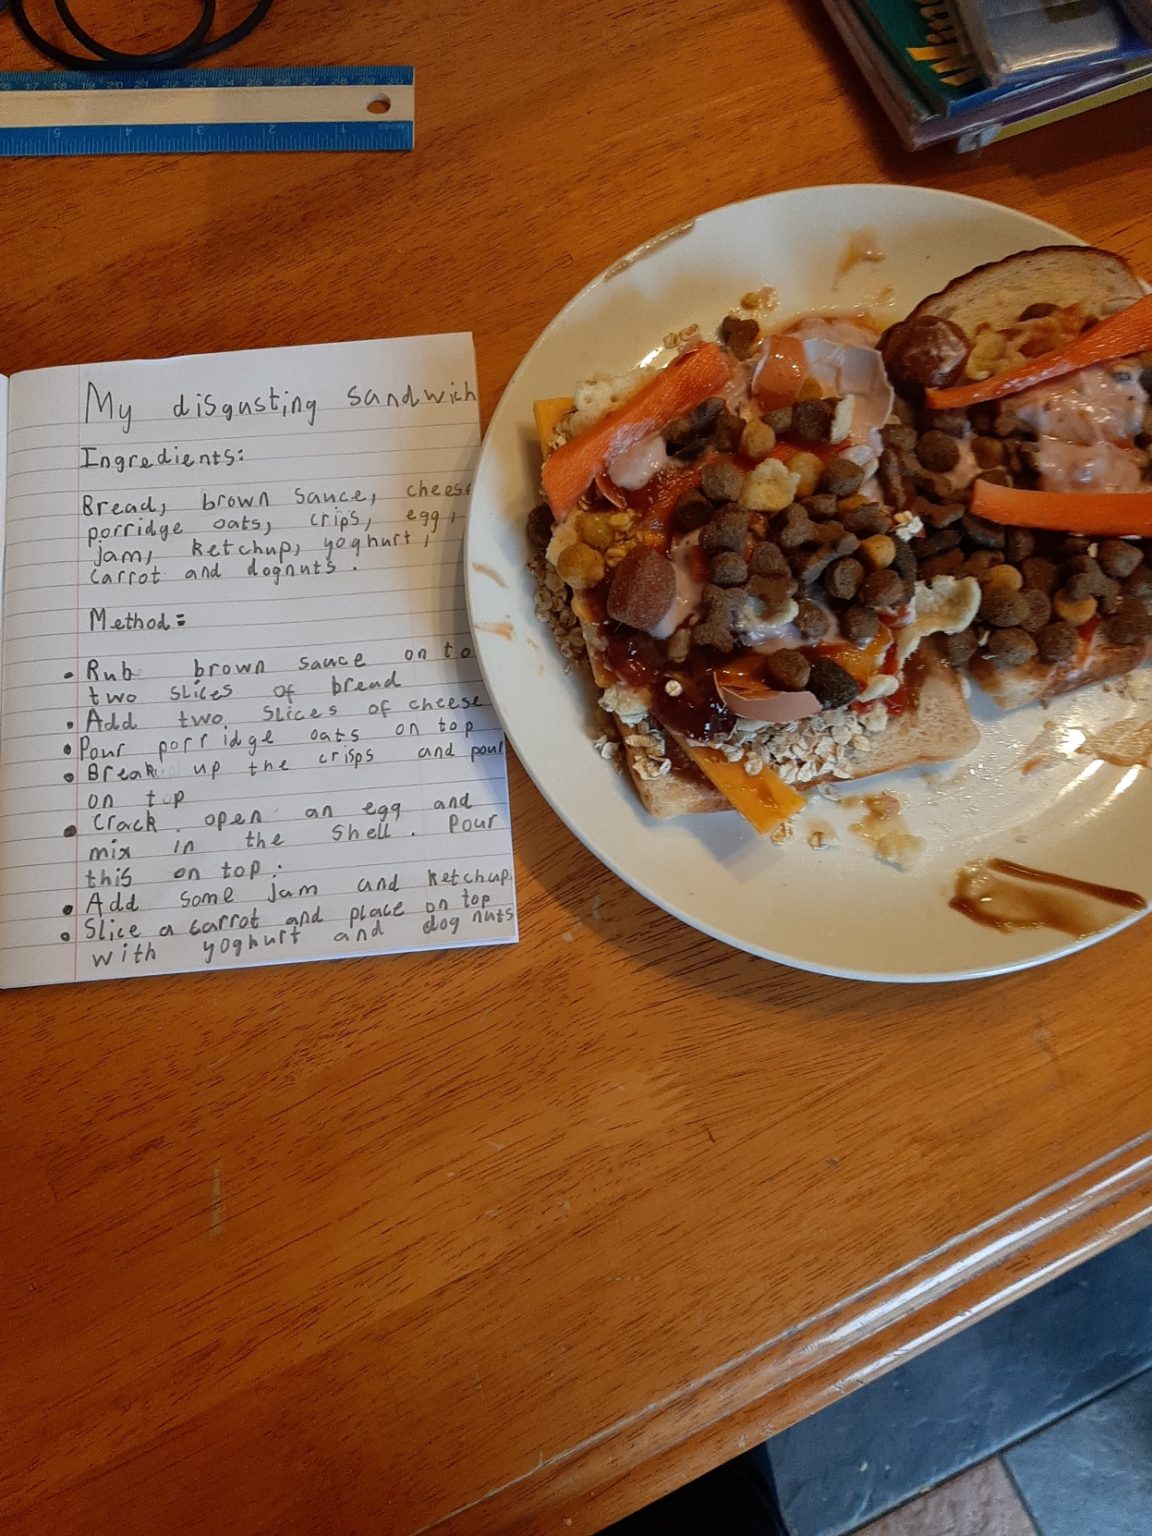 My disgusting sandwich
Ingredients:
Bread, brown sauce, cheese
porridge oats, crips, egg,
jam, ketchup, yoghurt,
carrot and dognuts.
Method:
• Rub brown sauce on to
two slices of bread
• Add two slices of cheese
• Pour porridge oats on top
• Break up the crisps and pour
on top
• Crack open an egg and
mix in the shell. Pour
this on top.
• Add some jam and ketchup
• Slice a carrot and place on top
with yoghurt and dog nuts